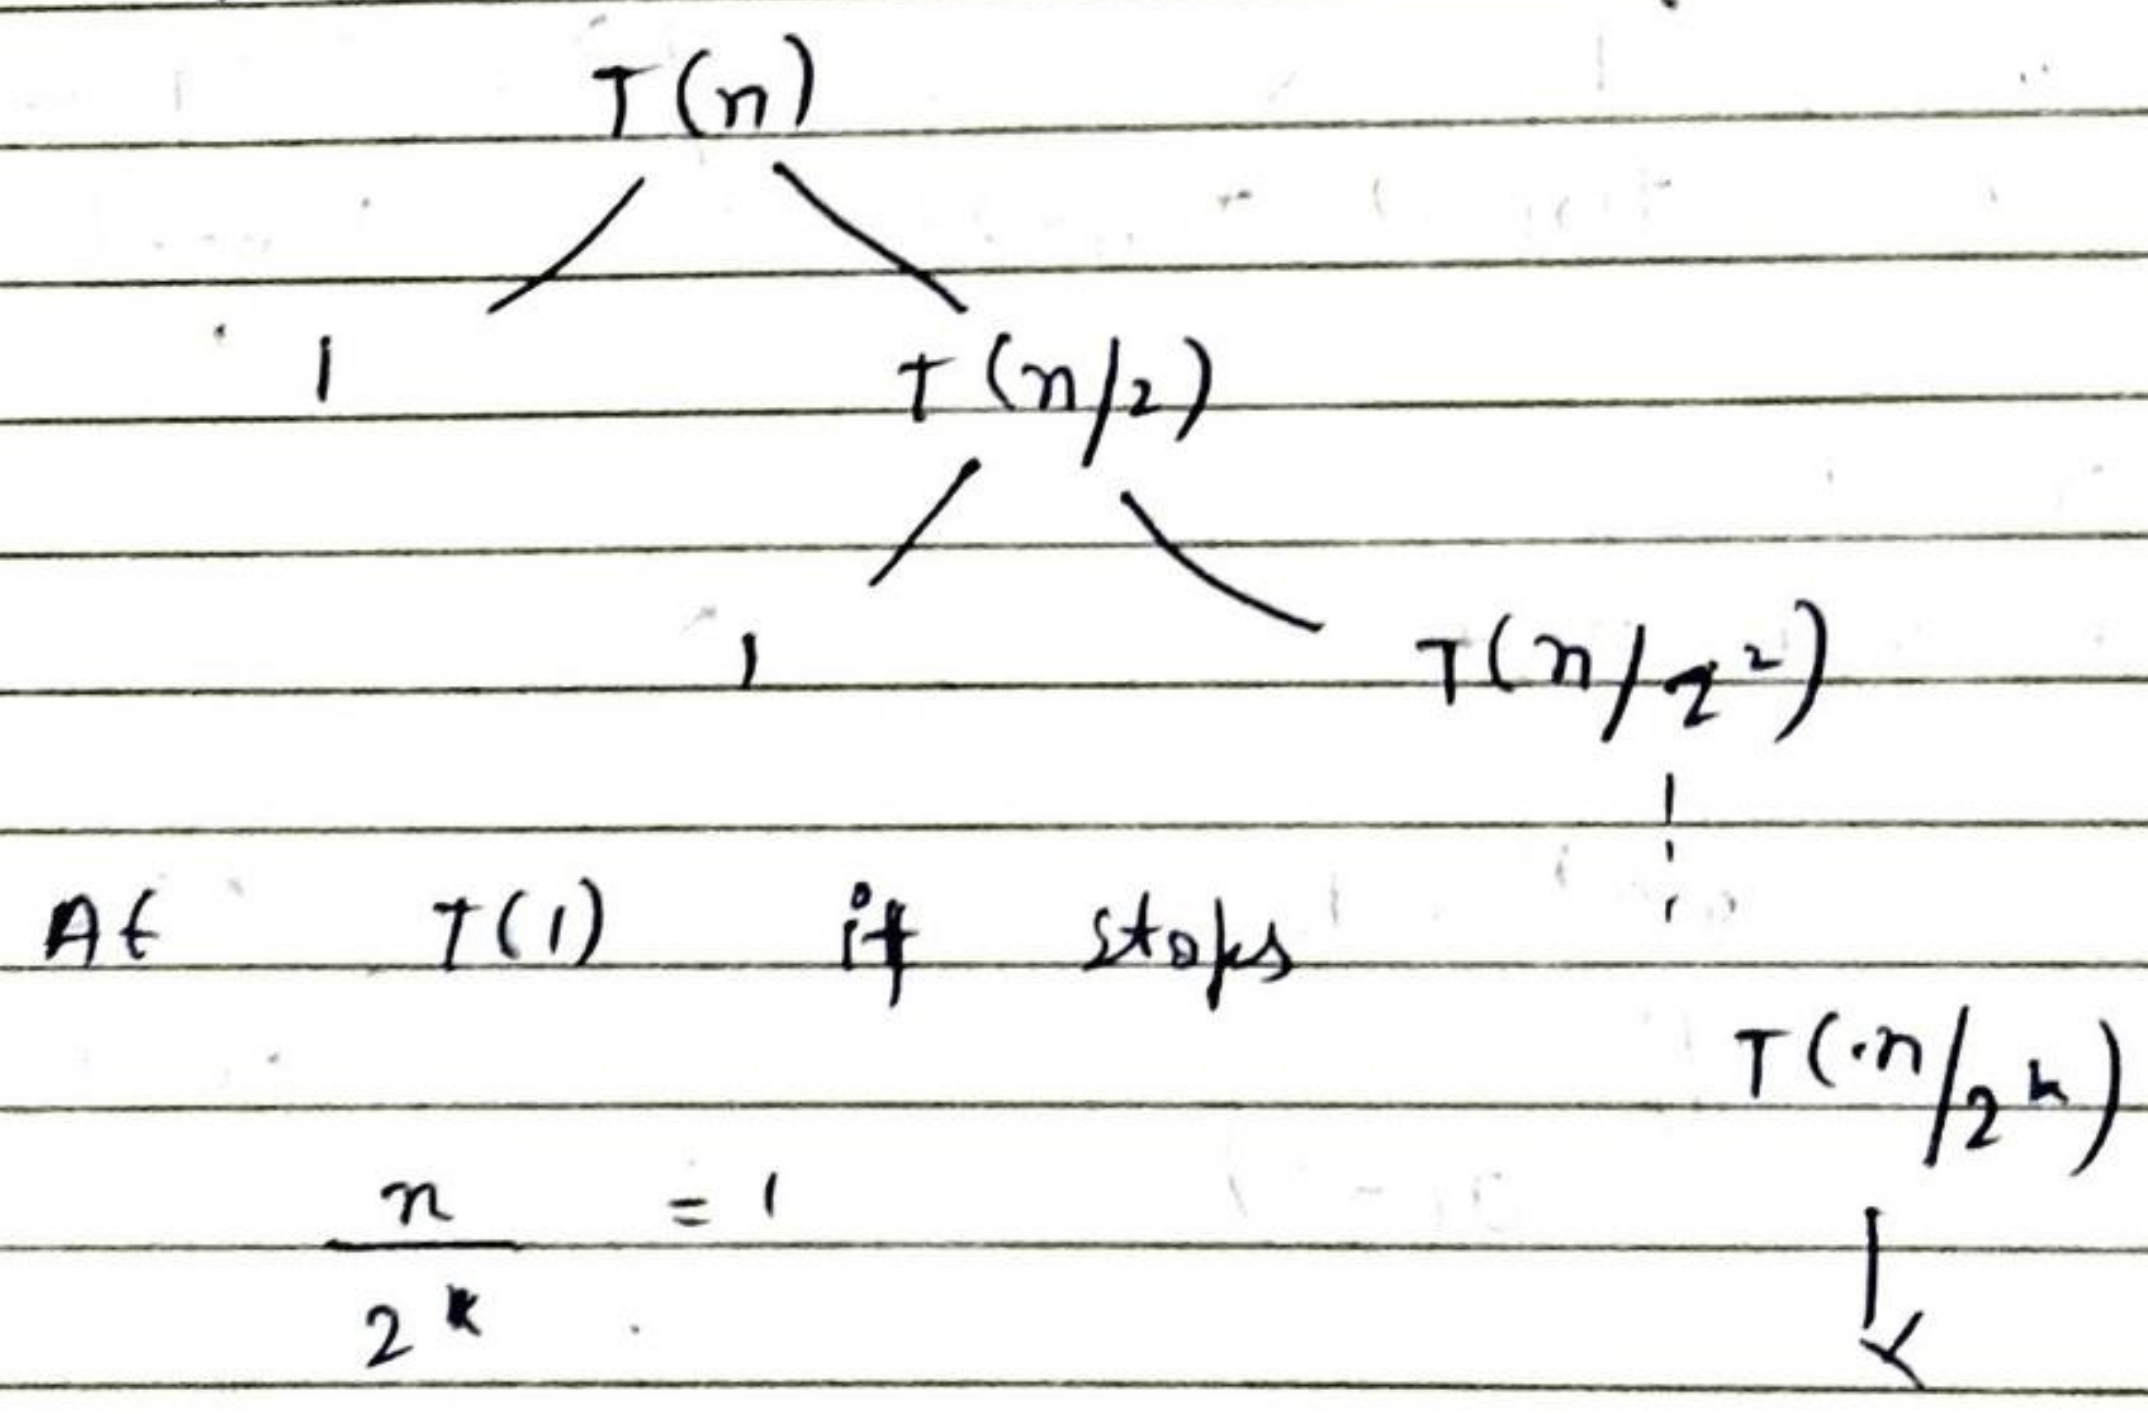 T(n)
1 T(n/2)
1 T(n/2²)
At T(1) it stops
T(n/2ᵏ)
n/2ᵏ = 1
k